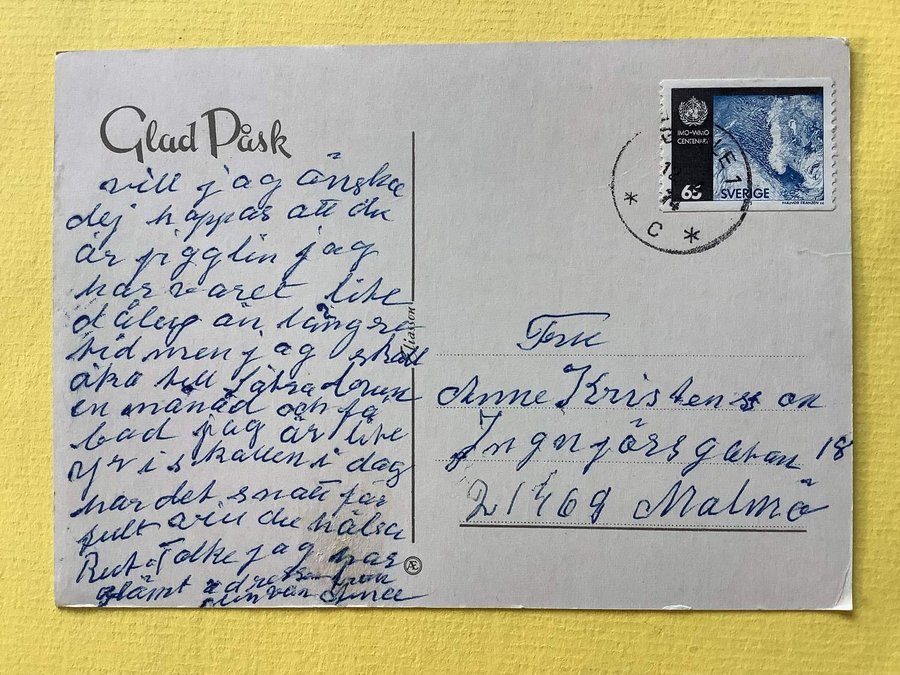 Glad Påsk
vill jag önska
dej hoppas att du
är pigglin jag
har varet lite
dålig än längre
tid men jag skall
åka till Sätra brunn
en månad och ta
bad jag är lite
yr i skallen i dag
har det snatt för
fult vill du hälsa
Rut o Tolke jag har
glämt adressen från
din vän Anna
Eliasson
Æ
IMO-WMO
CENTENARY
65
SVERIGE
C
Fru
Anne Kristensson
Ingnjörsgatan 18
21469 Malmö